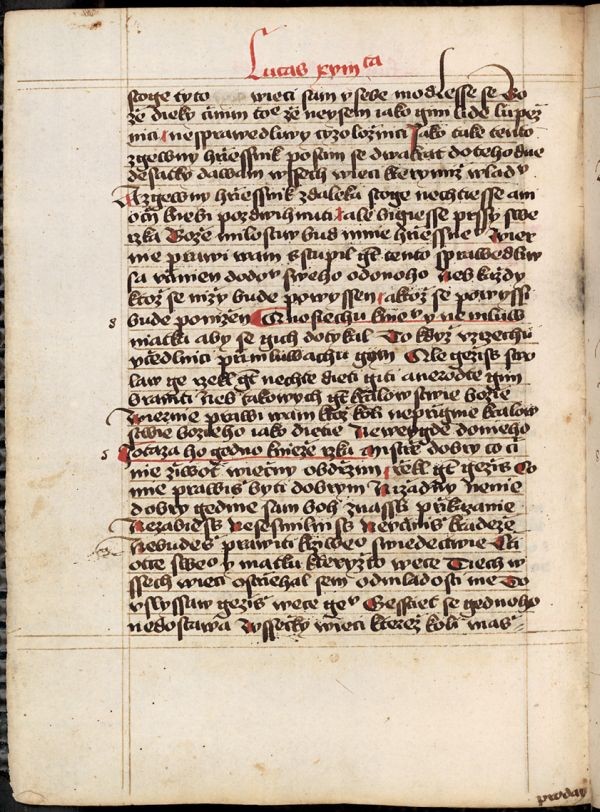 Lucas xviiita
stoge tyto wieci sam v sebe modlesse se Bo
ze dieky cinim tobe ze neysem iako gini lide lupez
nici nesprawedliwy cyzoloznici Jako take tento
zgewny hriessnik postim se dwakrat do tehodne
desatky dawam wssech wieci kterymiz wladu
A zgewny hriessnik zdaleka stoge nechtiesse ani
oci k nebi pozdwihnuti ale bigiesse prssy swe
rzka Boze milostiw bud mnie hriessne Wier
nie prawi wam sstupil gt tento sprawedliw
sa vcinen do dov sweho od onoho Neb kazdy
ktoz se nizy bude powyssen a ktoz se powyssi
bude ponizen Tu nosiechu k niemu y nemluw
niatka aby se gich dotykal To kdyz vzrziechu
vcedlnici primluwachu gym Ale gezis swo
law ge rzekl gt nechte dieti giti a nerodte gim
braniti Neb takowych gt kralowstwie bozie
Wiernie prawi wam ktoz koli neprigme kralow
stwie bozieho iako dietie Newegde do nieho
Otaza ho gedno knieze rzka Mistre dobry co ci
nie ziwot wieczny obdrzim rzekl gt gezis Co
mne prawis byti dobrym Nizadny nenie
dobry gedine sam boh znassli prikazanie
Nezabiess Nesesmilniss Neucinis kradeze
Nebudes prawiti krziweo swiedectwie Cti
otce tweo y matku kteryzto wece Tiech w
ssech wieci ostriehal sem od mladosti me To
vslyssaw gezis wece gev Gesstiet se gednoho
nedostawa Wssecky wieci kterez koli mas
proday